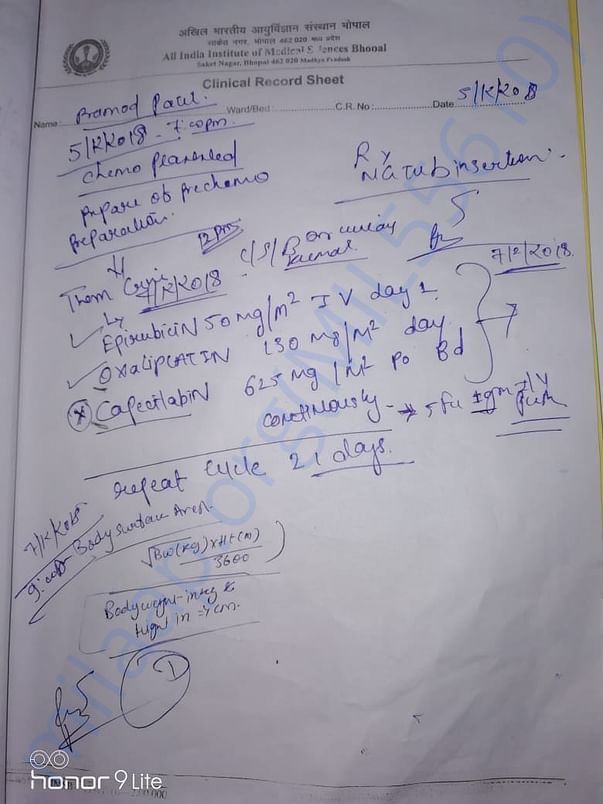 अखिल भारतीय आयुर्विज्ञान संस्थान भोपाल
साकेत नगर, भोपाल 462 020 मध्य प्रदेश
All India Institute of Medical Sciences Bhopal
Saket Nagar, Bhopal 462 020 Madhya Pradesh
Clinical Record Sheet
Name: Pramod Patel. Ward/Bed: C.R. No: Date 5/2/2018
5/2/2018 - 7:00pm.
Chemo
Prepare of prechemo
Preparation.
Rx
NG Tub insertion.
12 pm
7/2/2018
C/S/B
Kumar.
7/2/2018.
Epirubicin 50 mg/m² IV day 1
Oxaliplatin 130 mg/m² day
Capecitabin 625 mg/m² PO Bd
continously → 5fu 1gm I/V
repeat cycle 21 days.
7/2/2018
Body surface Area-
√BW(kg)xHt(m)
3600
Bodyweight- in kg &
hight in cm.
milaap.org
honor 9 Lite